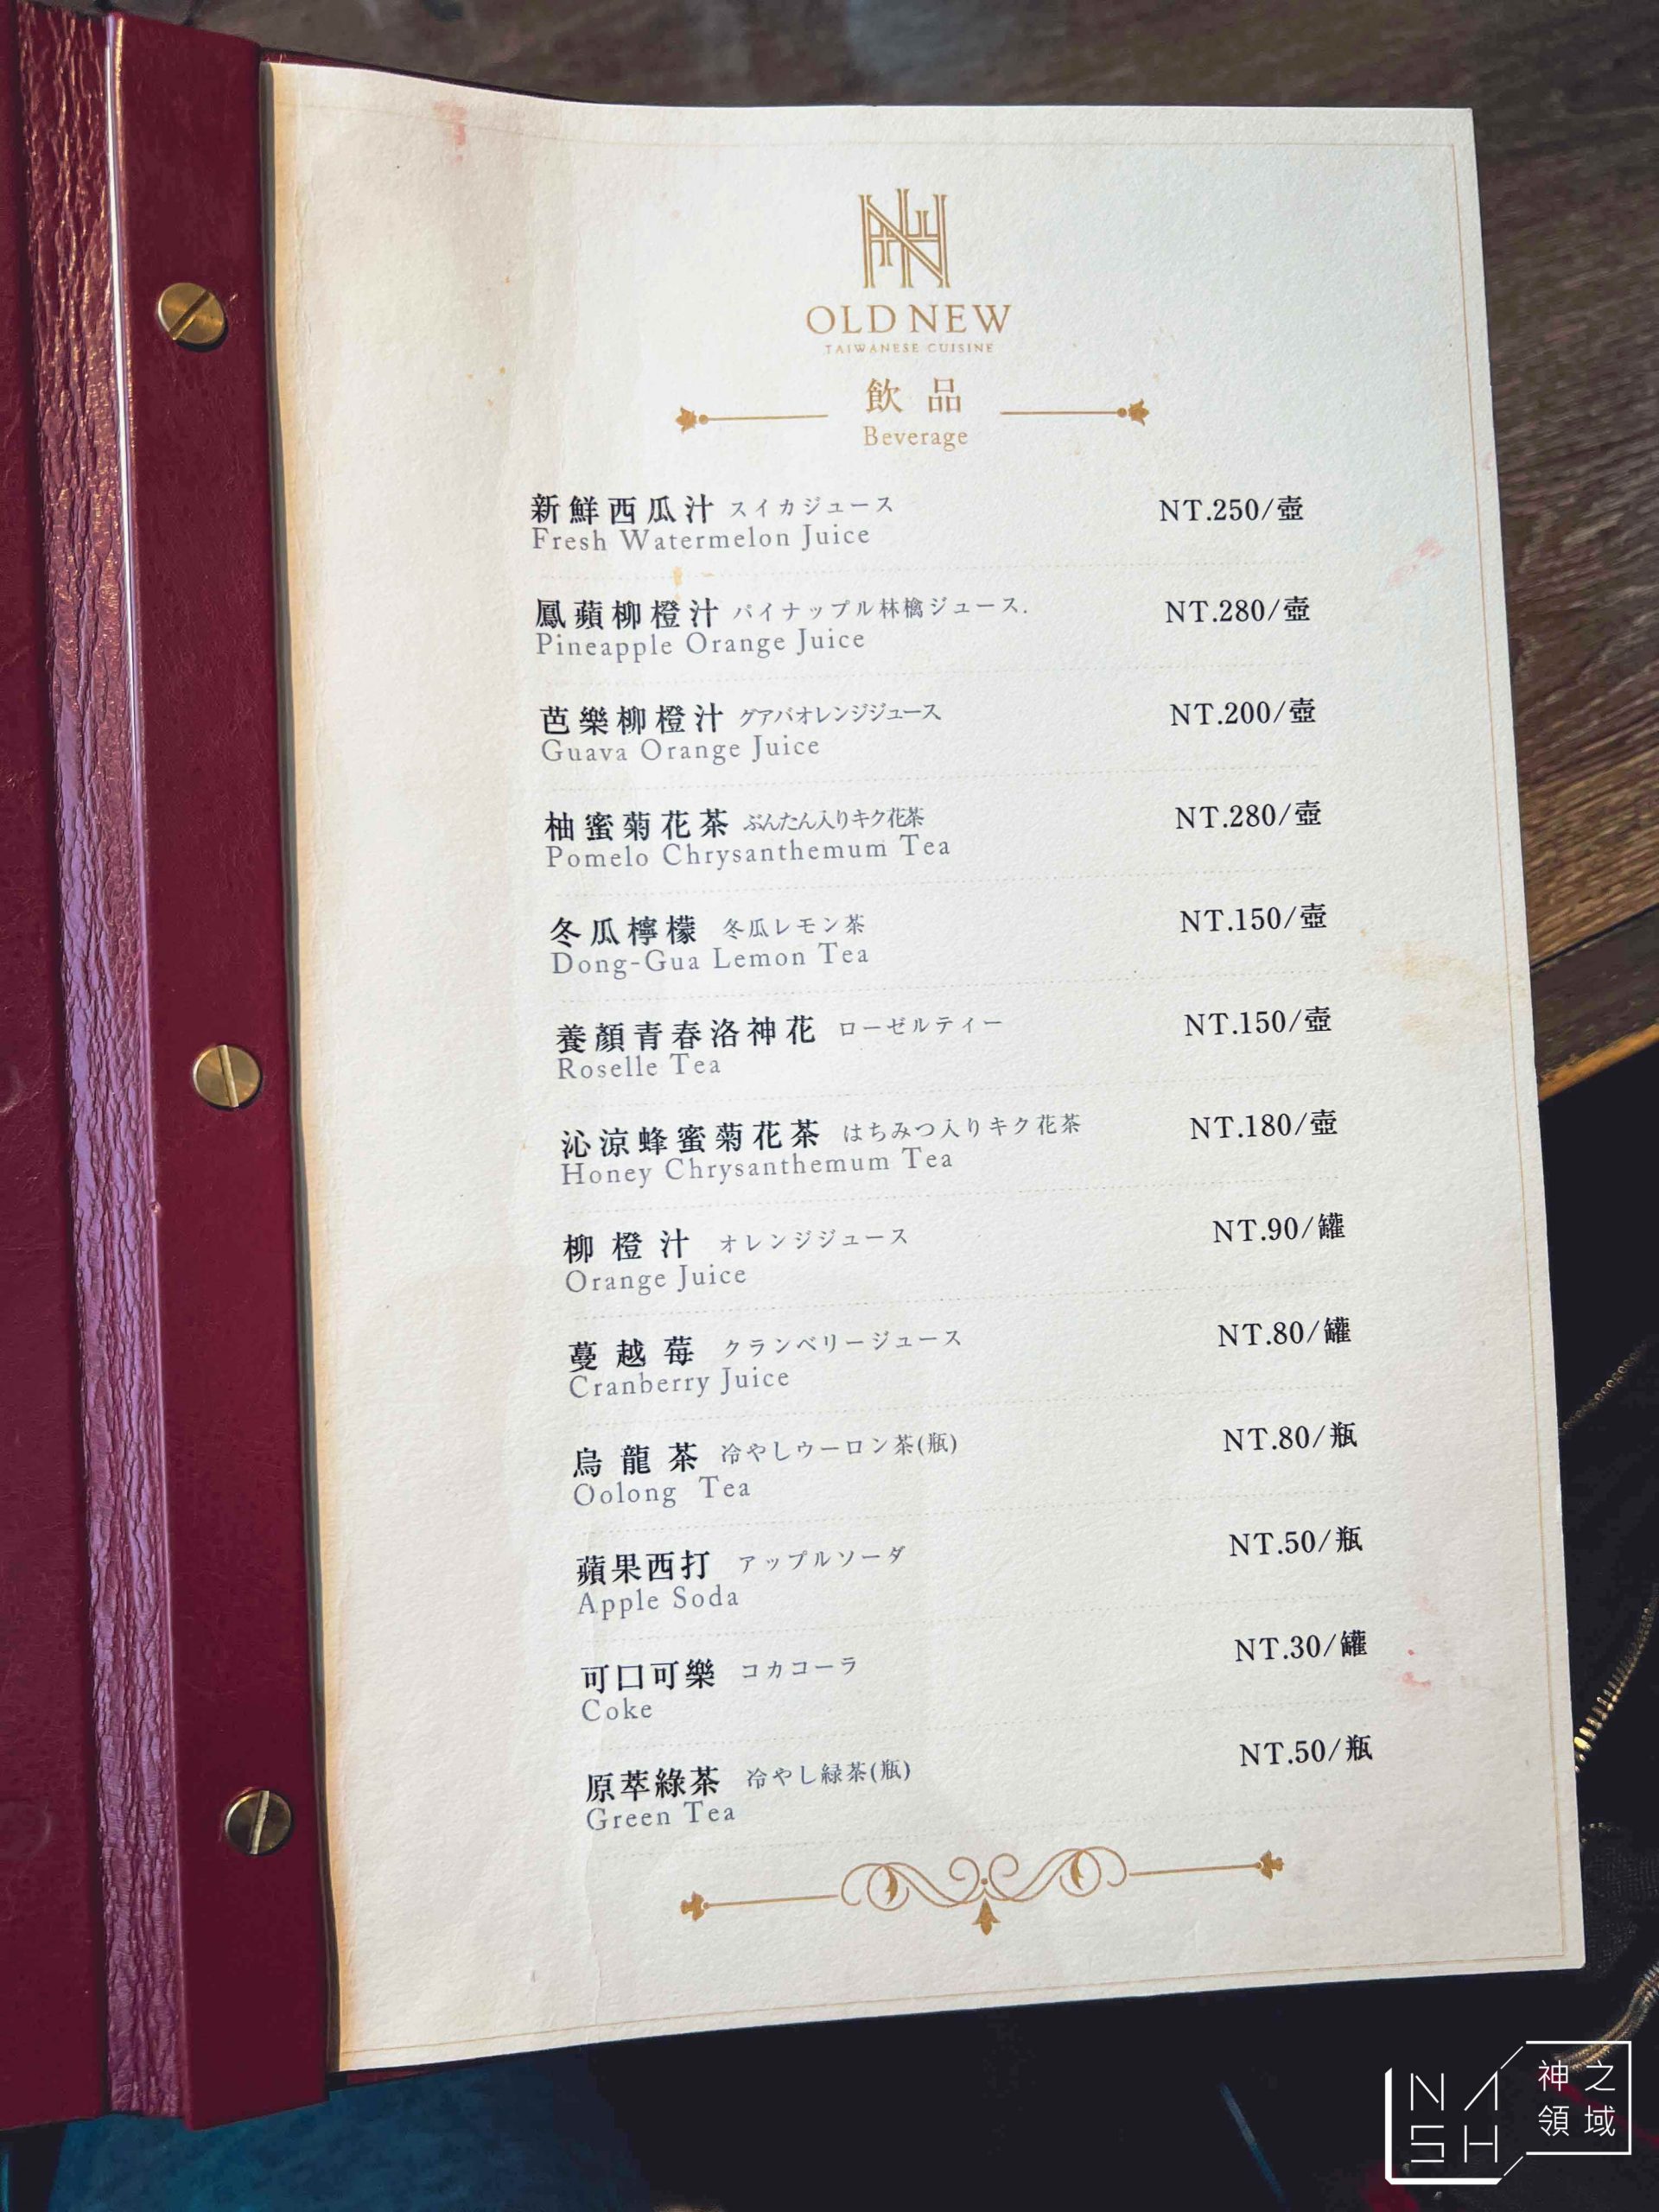 OLD NEW
TAIWANESE CUISINE
飲品
Beverage
新鮮西瓜汁 スイカジュース NT.250/壺
Fresh Watermelon Juice
鳳蘋柳橙汁 パイナップル林檎ジュース. NT.280/壺
Pineapple Orange Juice
芭樂柳橙汁 グアバオレンジジュース NT.200/壺
Guava Orange Juice
柚蜜菊花茶 ぶんたん入りキク花茶 NT.280/壺
Pomelo Chrysanthemum Tea
冬瓜檸檬 冬瓜レモン茶 NT.150/壺
Dong-Gua Lemon Tea
養顏青春洛神花 ローゼルティー NT.150/壺
Roselle Tea
沁涼蜂蜜菊花茶 はちみつ入りキク花茶 NT.180/壺
Honey Chrysanthemum Tea
柳橙汁 オレンジジュース NT.90/罐
Orange Juice
蔓越莓 クランベリージュース NT.80/罐
Cranberry Juice
烏龍茶 冷やしウーロン茶(瓶) NT.80/瓶
Oolong Tea
蘋果西打 アップルソーダ NT.50/瓶
Apple Soda
可口可樂 コカコーラ NT.30/罐
Coke
原萃綠茶 冷やし緑茶(瓶) NT.50/瓶
Green Tea
NASH
神之領域